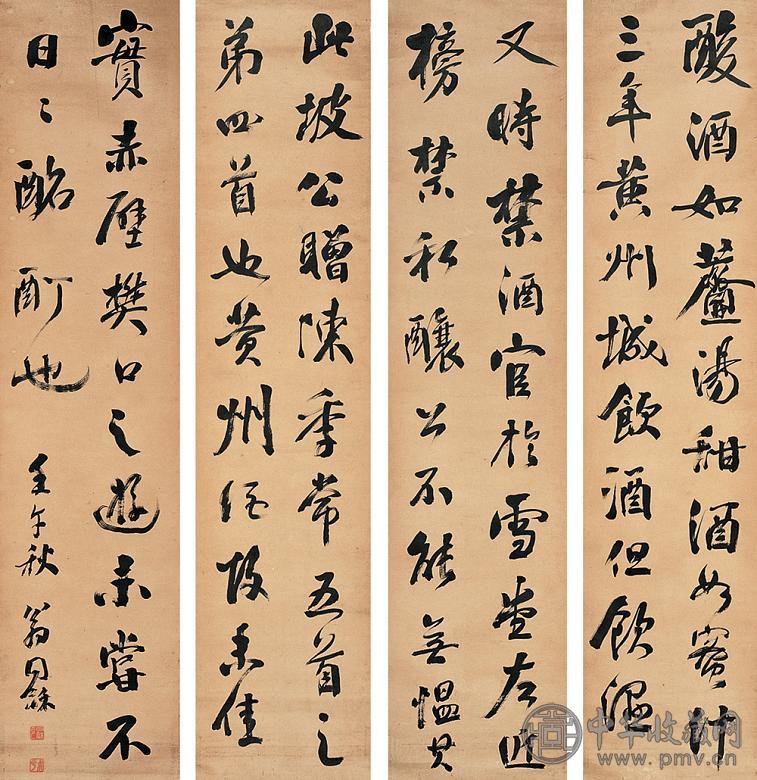 酸酒如虀湯甜酒如蜜汁
三年黄州城飲酒但飲濕
又時禁酒官於雪堂左近
榜禁私釀公不能無慍其
此坡公贈陳季常五首之
第四首也黄州酒故未佳
實赤壁樊口之遊未嘗不
日〻酩酊也 壬午秋 翁同龢
中华收藏网
www.pmv.cn